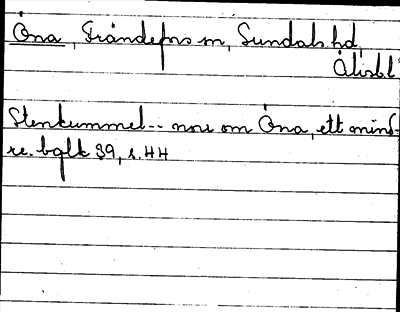 Öna, Frändefors sn, Sundals hd,
Älvsbl
Stenkummel -- norr om Öna, ett mind-
re. bglk 39, s. 44